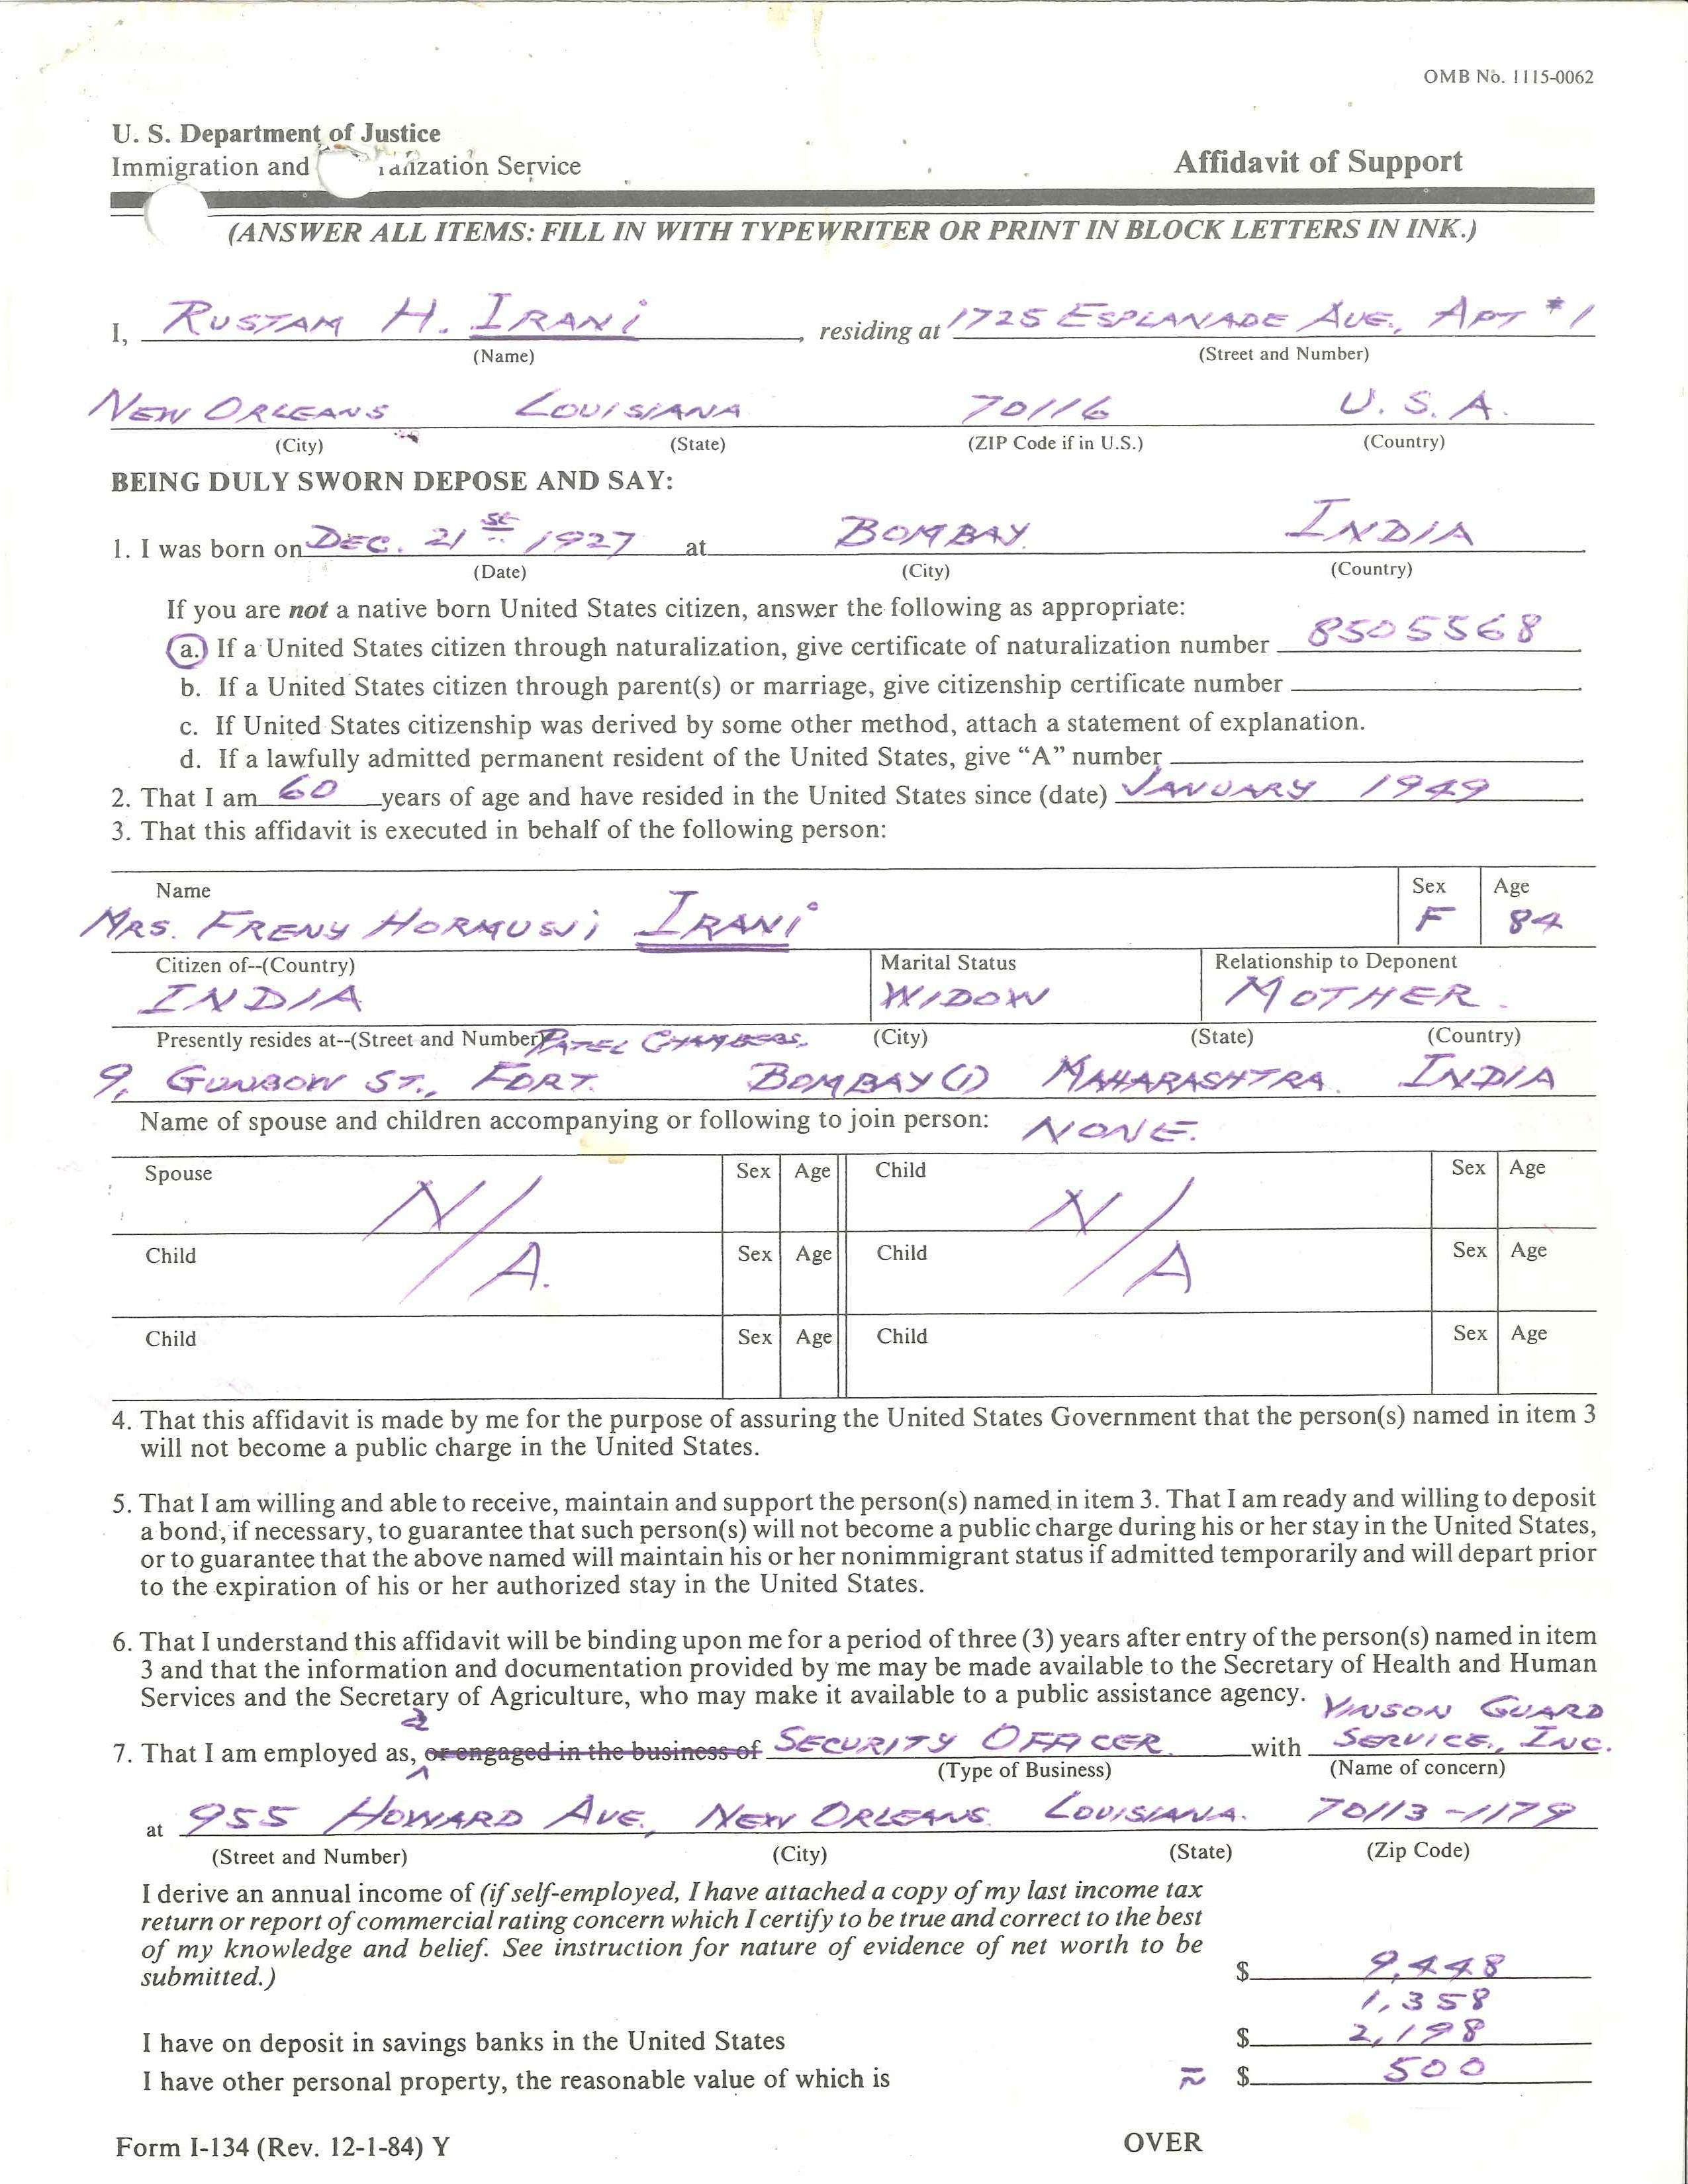 OMB No. 1115-0062
U. S. Department of Justice
Immigration and alization Service
Affidavit of Support
(ANSWER ALL ITEMS: FILL IN WITH TYPEWRITER OR PRINT IN BLOCK LETTERS IN INK.)
I, RUSTAM H. IRANi, residing at 1725 ESPLANADE AVE., APT #1
(Name) (Street and Number)
NEW ORLEANS LOUISIANA 70116 U.S.A.
(City) (State) (ZIP Code if in U.S.) (Country)
BEING DULY SWORN DEPOSE AND SAY:
1. I was born on DEC. 21st 1927 at BOMBAY INDIA
(Date) (City) (Country)
If you are not a native born United States citizen, answer the following as appropriate:
a. If a United States citizen through naturalization, give certificate of naturalization number 8505568
b. If a United States citizen through parent(s) or marriage, give citizenship certificate number
c. If United States citizenship was derived by some other method, attach a statement of explanation.
d. If a lawfully admitted permanent resident of the United States, give “A” number
2. That I am 60 years of age and have resided in the United States since (date) JANUARY 1949
3. That this affidavit is executed in behalf of the following person:
Name Sex Age
MRS. FRENY HORMUSJi IRANi F 84
Citizen of--(Country) Marital Status Relationship to Deponent
INDIA WIDOW MOTHER.
Presently resides at--(Street and Number) PATEL CHAMBERS, (City) (State) (Country)
9, GUNBOW ST., FORT. BOMBAY(1) MAHARASHTRA. INDIA
Name of spouse and children accompanying or following to join person: NONE.
Spouse Sex Age Child Sex Age
N/A. N/A
Child Sex Age Child Sex Age
Child Sex Age Child Sex Age
4. That this affidavit is made by me for the purpose of assuring the United States Government that the person(s) named in item 3
will not become a public charge in the United States.
5. That I am willing and able to receive, maintain and support the person(s) named in item 3. That I am ready and willing to deposit
a bond, if necessary, to guarantee that such person(s) will not become a public charge during his or her stay in the United States,
or to guarantee that the above named will maintain his or her nonimmigrant status if admitted temporarily and will depart prior
to the expiration of his or her authorized stay in the United States.
6. That I understand this affidavit will be binding upon me for a period of three (3) years after entry of the person(s) named in item
3 and that the information and documentation provided by me may be made available to the Secretary of Health and Human
Services and the Secretary of Agriculture, who may make it available to a public assistance agency.
VINSON GUARD
7. That I am employed as, a or engaged in the business of SECURITY OFFICER with SERVICE., INC.
(Type of Business) (Name of concern)
at 955 HOWARD AVE., NEW ORLEANS. LOUISIANA. 70113-1179
(Street and Number) (City) (State) (Zip Code)
I derive an annual income of (if self-employed, I have attached a copy of my last income tax
return or report of commercial rating concern which I certify to be true and correct to the best
of my knowledge and belief. See instruction for nature of evidence of net worth to be
submitted.) $ 9,448
1,358
I have on deposit in savings banks in the United States $ 2,198
I have other personal property, the reasonable value of which is ≈ $ 500
Form I-134 (Rev. 12-1-84) Y OVER